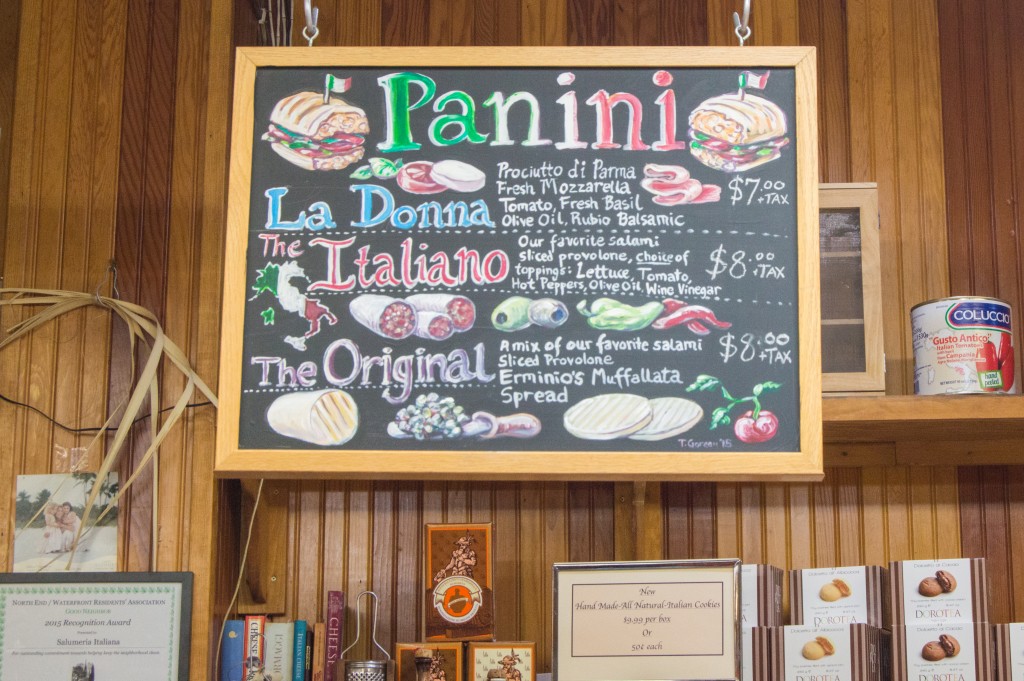 Panini
La Donna
Prociutto di Parma
Fresh Mozzarella
Tomato, Fresh Basil
Olive Oil, Rubio Balsamic
$7.00
+TAX
The Italiano
Our favorite salami
sliced provolone, choice of
toppings: Lettuce, Tomato,
Hot Peppers, Olive Oil, Wine Vinegar
$8.00
+TAX
The Original
A mix of our favorite salami
Sliced Provolone
Erminio's Muffallata
Spread
$8.00
+TAX
COLUCCIO
"Gusto Antico"
Italian Tomatoes
Campania
hand
peeled
North End / Waterfront Residents' Association
Good Neighbor
2015 Recognition Award
Presented to
Salumeria Italiana
CHEESE
New
Hand Made-All Natural-Italian Cookies
$9.99 per box
Or
50¢ each
DOROTEA
DOROTEA
DOROTEA